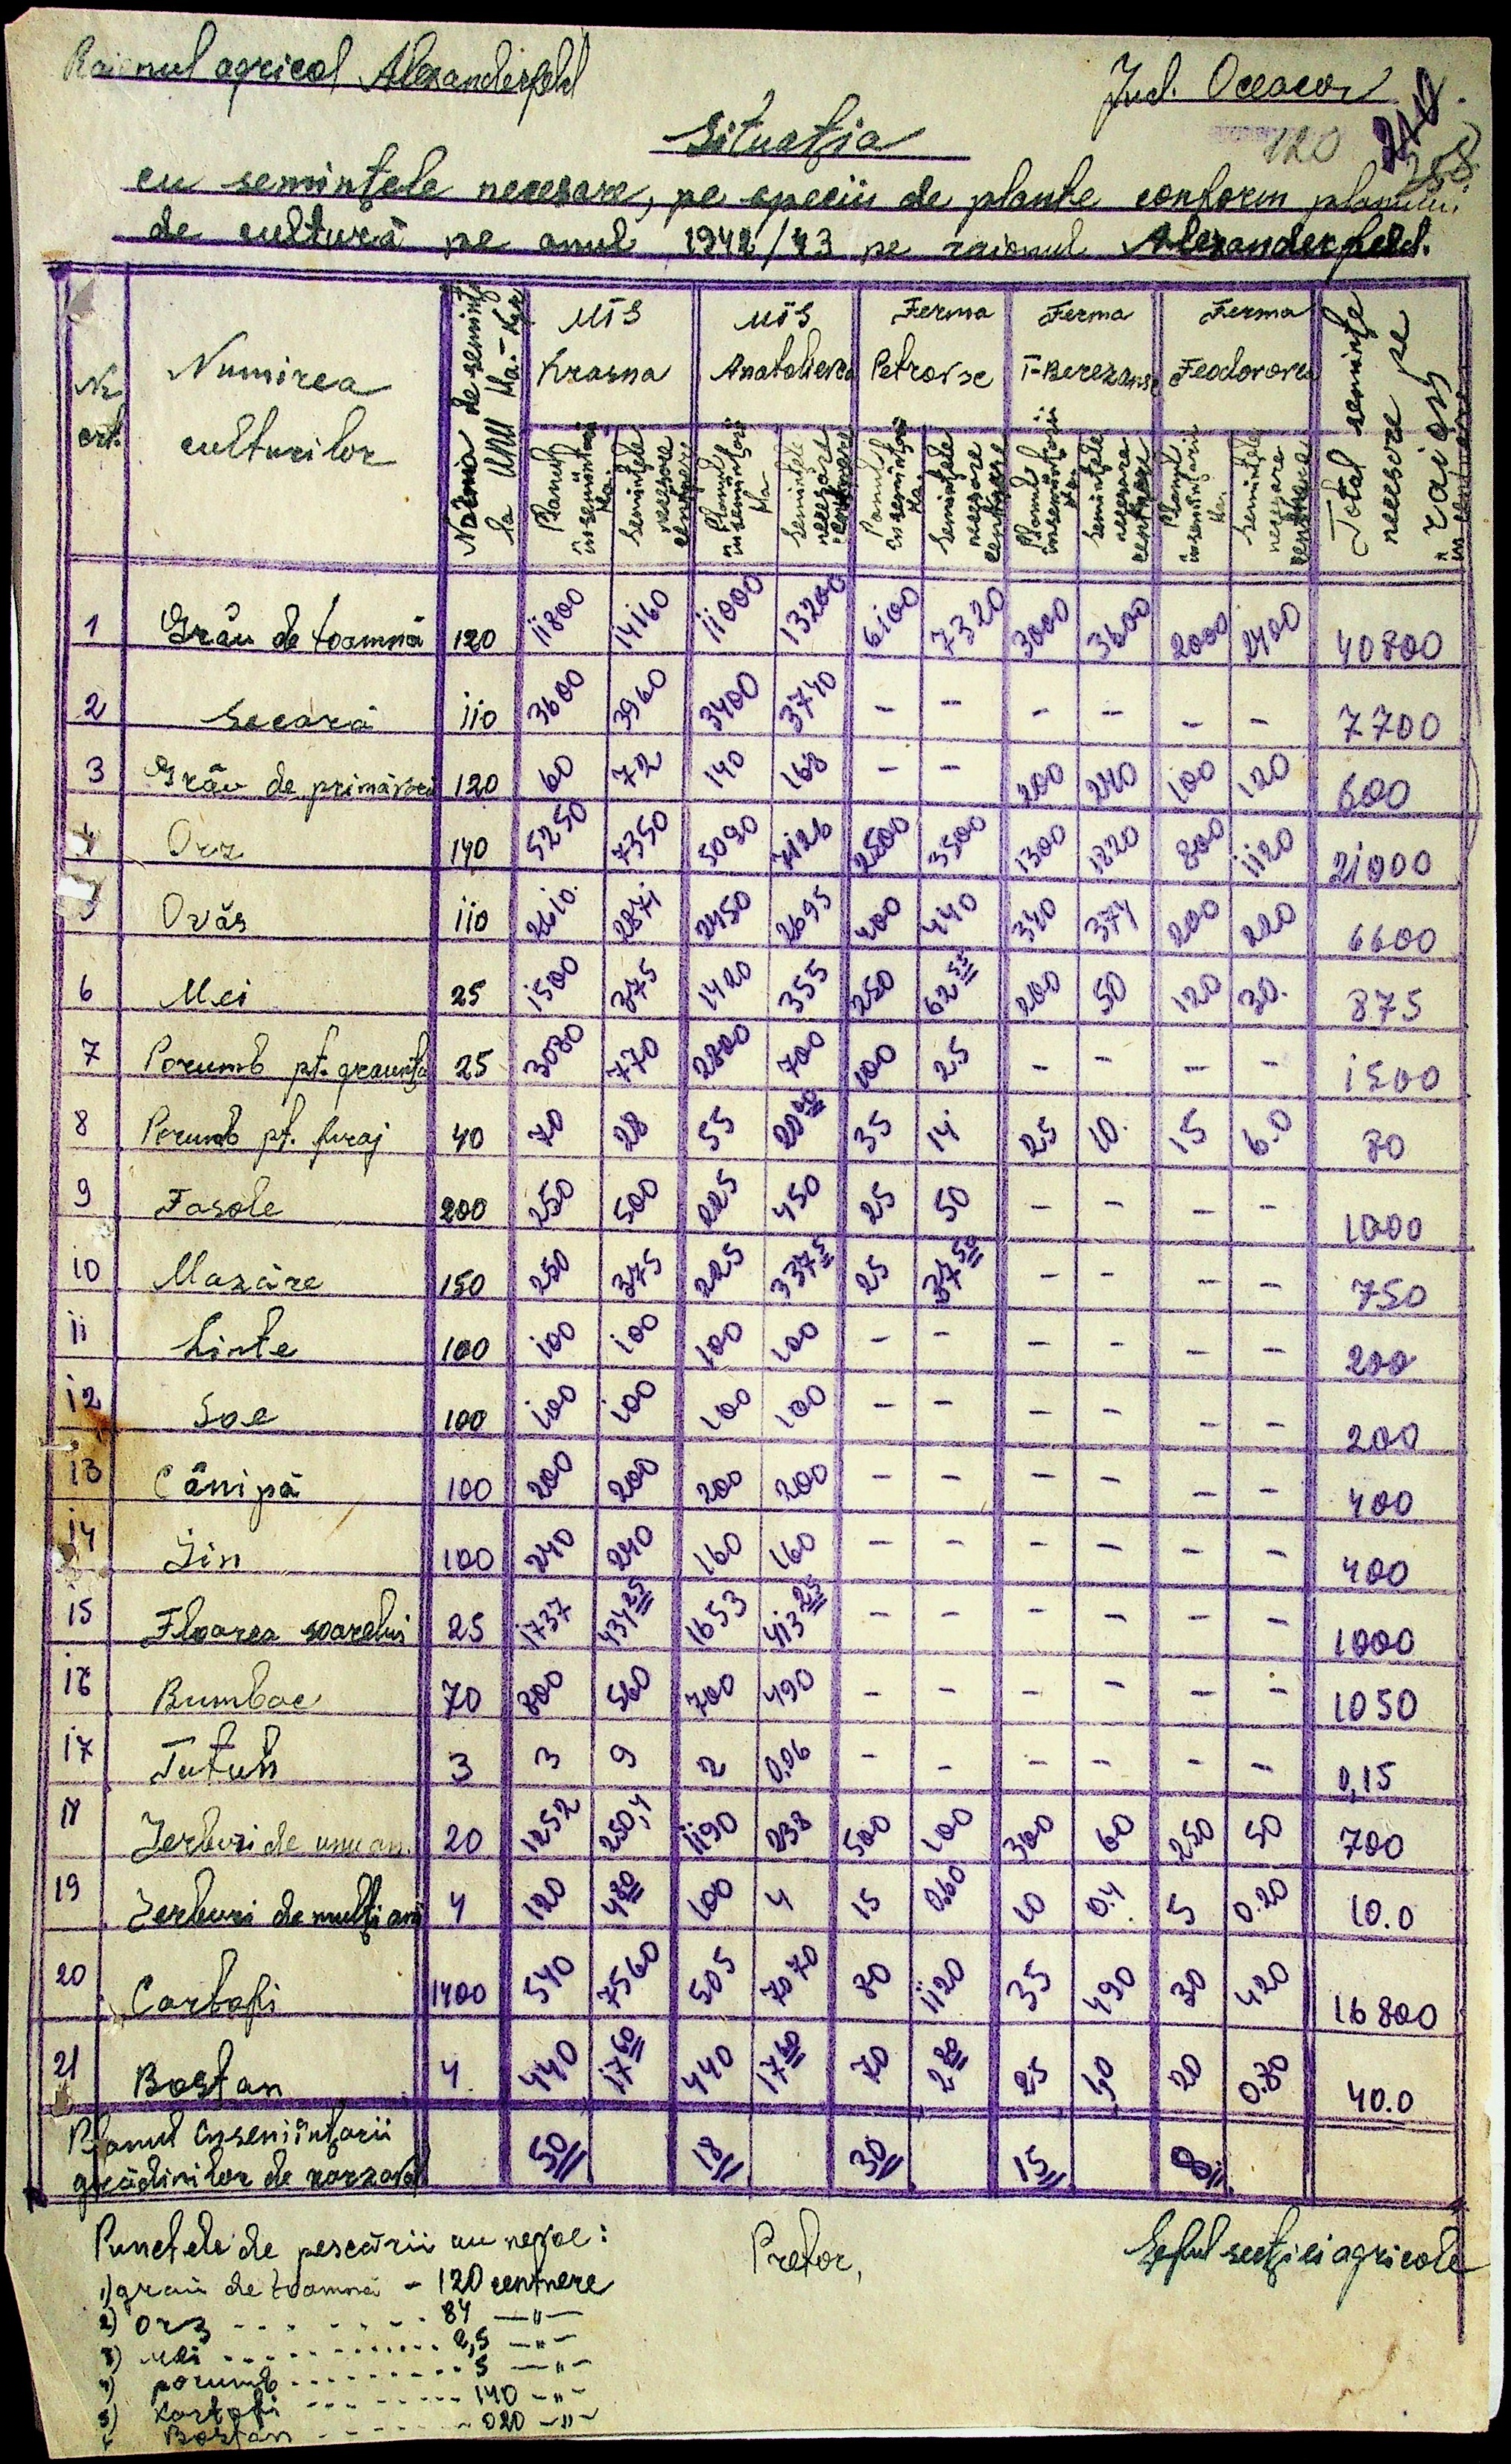 Raionul agricol Alexanderfeld
Jud. Oceacov
120
Situația
cu semințele necesare, pe specii de plante conform planului
de cultură pe anul 1942/43 pe raionul Alexanderfeld.
Nr. crt. | Numirea culturilor | Norma de semințe la unu Ha.-Kgr | MTS Krasna | MTS Anatolievca | Ferma Petrovsc | Ferma T-Berezansc | Ferma Feodorovca | Total semințe necesare pe raion în centnere
Planul însemințării Ha. | Semințele necesare centnere | Planul însemințării Ha | Semințele necesare centnere | Planul însemințării Ha. | Semințele necesare centnere | Planul însemințării Ha. | Semințele necesare centnere | Planul însemințării Ha. | Semințele necesare centnere
1 Grâu de toamnă 120 11800 14160 11000 13200 6100 7320 3000 3600 2000 2400 40800
2 Secară 110 3600 3960 3400 3740 - - - - - - 7700
3 Grâu de primăvară 120 60 72 140 168 - - 200 240 100 120 600
4 Orz 140 5250 7350 5090 7126 2500 3500 1300 1820 800 1120 21000
5 Ovăs 110 2610 2871 2450 2695 400 440 340 374 200 220 6600
6 Mei 25 1500 375 1420 355 250 62 200 50 120 30. 875
7 Porumb pt. graunțe 25 3080 770 2800 700 100 25 - - - - 1500
8 Porumb pt. furaj 40 70 28 55 20 35 14 25 10. 15 6.0 80
9 Fasole 200 250 500 225 450 25 50 - - - - 1000
10 Mazăre 150 250 375 225 337 5 25 37 50 - - - - 750
11 Linte 100 100 100 100 100 - - - - - - 200
12 Soe 100 100 100 100 100 - - - - - - 200
13 Cânipă 100 200 200 200 200 - - - - - - 400
14 Jin 100 240 240 160 160 - - - - - - 400
15 Floarea soarelui 25 1737 434 25 1653 413 25 - - - - - - 1000
16 Bumbac 70 800 560 700 490 - - - - - - 1050
17 Tutun 3 3 9 2 0,06 - - - - - - 0,15
18 Jerburi de unu an. 20 1252 250,4 1190 238 500 100 300 60 250 50 700
19 Jerburi de mulți ani 4 120 4 80 100 4 15 0.60 10 0.4 5 0.20 10.0
20 Cartofi 1400 540 7560 505 7070 80 1120 35 490 30 420 16800
21 Bostan 4 440 17 60 440 17 60 70 2 80 25 1,0 20 0.80 40.0
Planul însemințării
grădinilor de zarzavat 50 18 30 15 8
Punctele de pescării au nevoe:
Pretor,
Șeful secției agricole
1) grau de toamnă - 120 centnere
2) orz - - - - - 84 —"—
3) Mei - - - - - 2,5 —"—
4) porumb - - - - - 5 —"—
5) Kartofi - - - - - 140 —"—
Bostan - - - - - 020 —"—